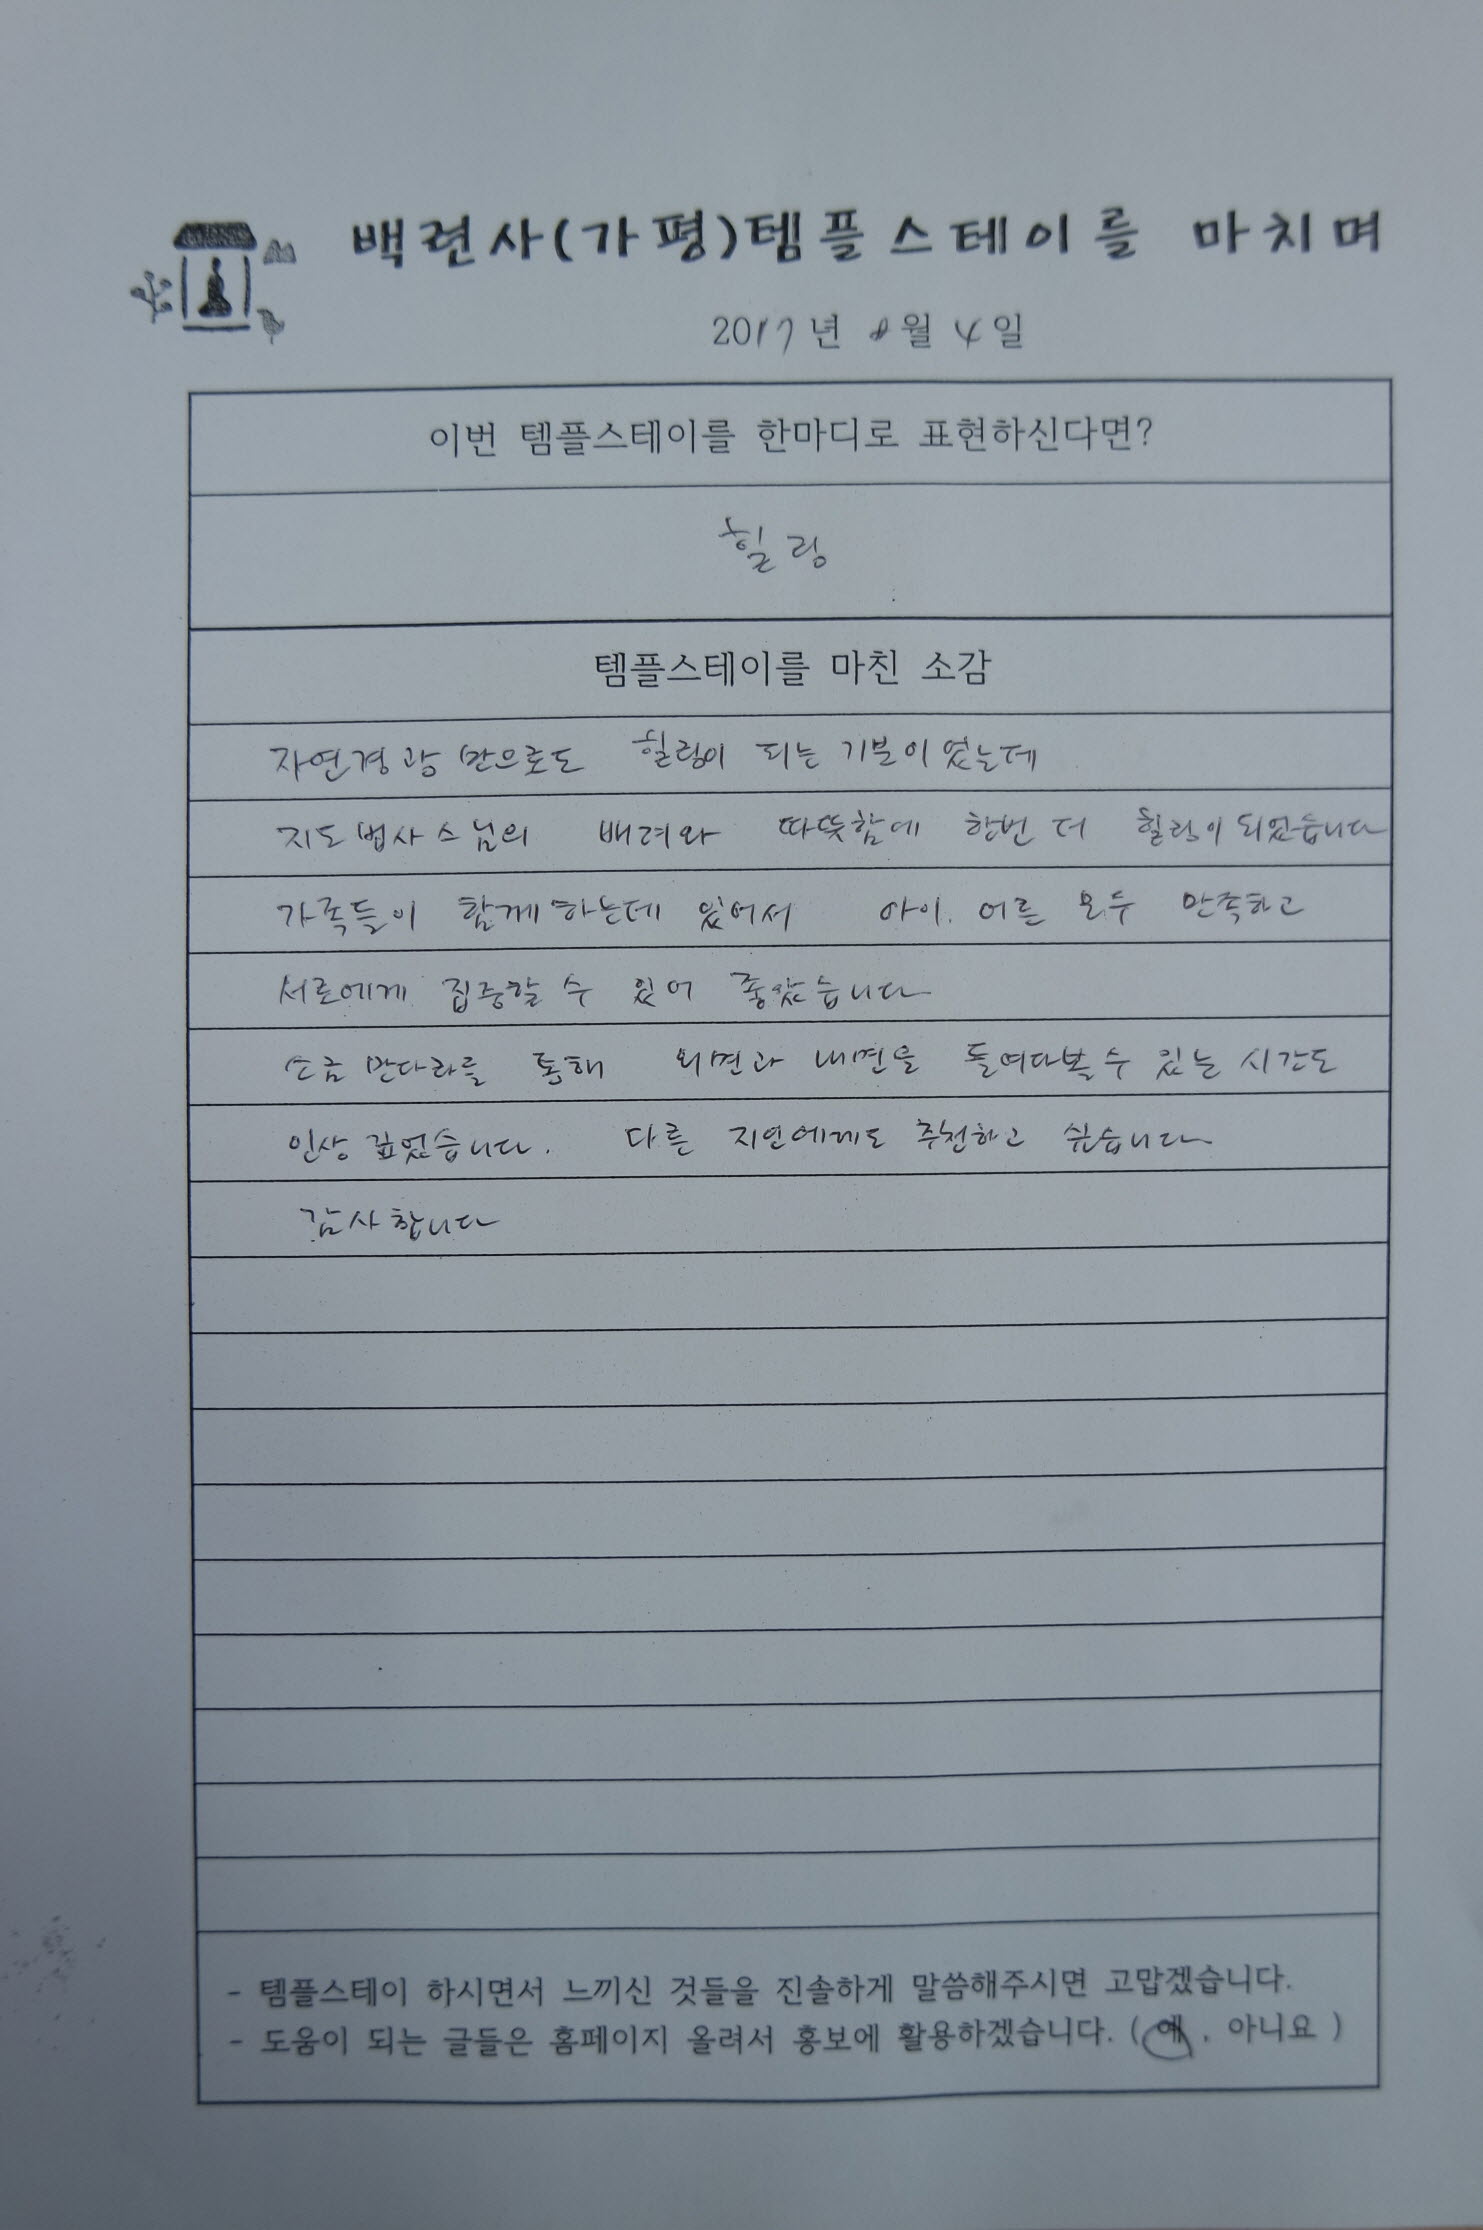 백련사(가평)템플스테이를 마치며
2017년 8월 4일
이번 템플스테이를 한마디로 표현하신다면?
힐링
템플스테이를 마친 소감
자연경광 만으로도 힐링이 되는 기분이었는데
지도법사스님의 배려와 따뜻함에 한번 더 힐링이 되었습니다
가족들이 함께하는데 있어서 아이. 어른 모두 만족하고
서로에게 집중할 수 있어 좋았습니다
소금 만다라를 통해 외면과 내면을 돌여다볼 수 있는 시간도
인상 깊었습니다. 다른 지인에게도 추천하고 싶습니다
감사합니다
- 템플스테이 하시면서 느끼신 것들을 진솔하게 말씀해주시면 고맙겠습니다.
- 도움이 되는 글들은 홈페이지 올려서 홍보에 활용하겠습니다. ( 예 , 아니요 )